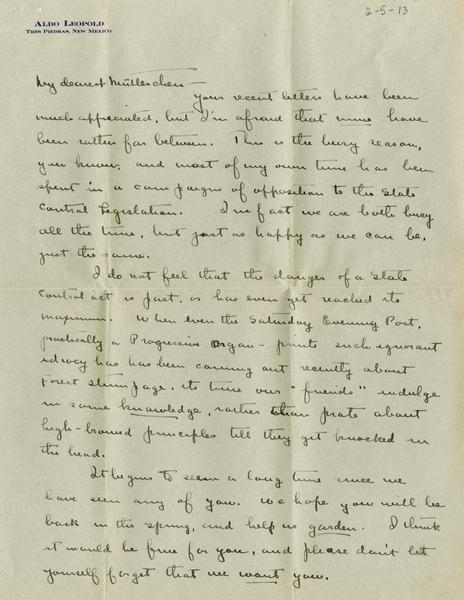 2-5-13
ALDO LEOPOLD
TRES PIEDRAS, NEW MEXICO
My dearest Mütterchen -
Your recent letters have been
much appreciated, but I'm afraid that mine have
been rather far between. This is the busy season,
you know, and most of my own time has been
spent in a campaign of opposition to the State
Control Legislation. In fact we are both busy
all the time, but just as happy as we can be,
just the same.
I do not feel that the danger of a State
Control act is past, or has even yet reached its
maximum. When even the Saturday Evening Post,
practically a Progressive organ - prints such ignorant
idiocy has has been coming out recently about
forest stumpage, its time our "friends" indulge
in some knowledge, rather than prate about
high-browed principles till they get knocked in
the head.
It begins to seem a long time since we
have seen any of you. We hope you will be
back in the spring, and help us garden. I think
it would be fine for you, and please don't let
yourself forget that we want you.